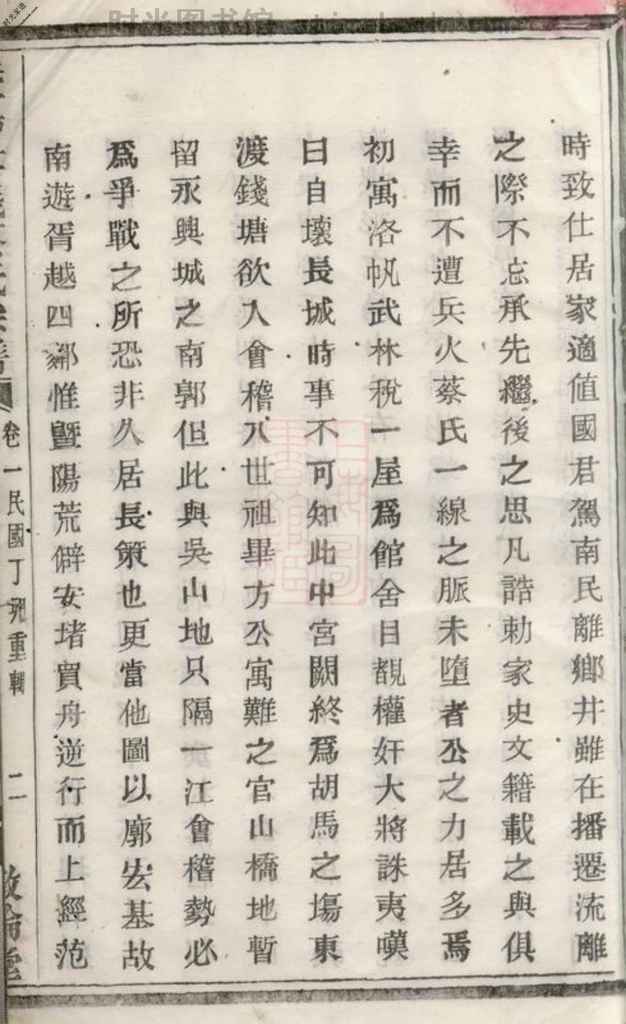 時致仕居家適值國君駕南民離鄉井雖在播遷流離
之際不忘承先繼後之思凡誥勅家史文籍載之與俱
幸而不遭兵火蔡氏一線之脈未墮者公之力居多焉
初寓洛帆武林稅一屋爲館舍目覩權奸大將誅夷嘆
曰自壞長城時事不可知此中宮闕終爲胡馬之塲東
渡錢塘欲入會稽八世祖畢方公寓難之官山橋地暫
留永興城之南郭但此與吳山地只隔一江會稽勢必
爲爭戰之所恐非久居長策也更當他圖以廓宏基故
南遊胥越四鄰惟暨陽荒僻安堵買舟逆行而上經范
卷一民國丁夘重輯 二